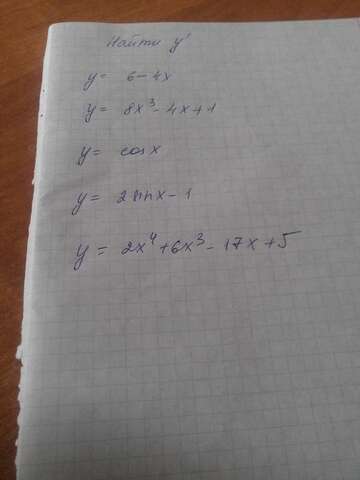 Найти y'
y = 6-4x
y = 8x³-4x+1
y = cosx
y = 2sinx-1
y = 2x⁴+6x³-17x+5